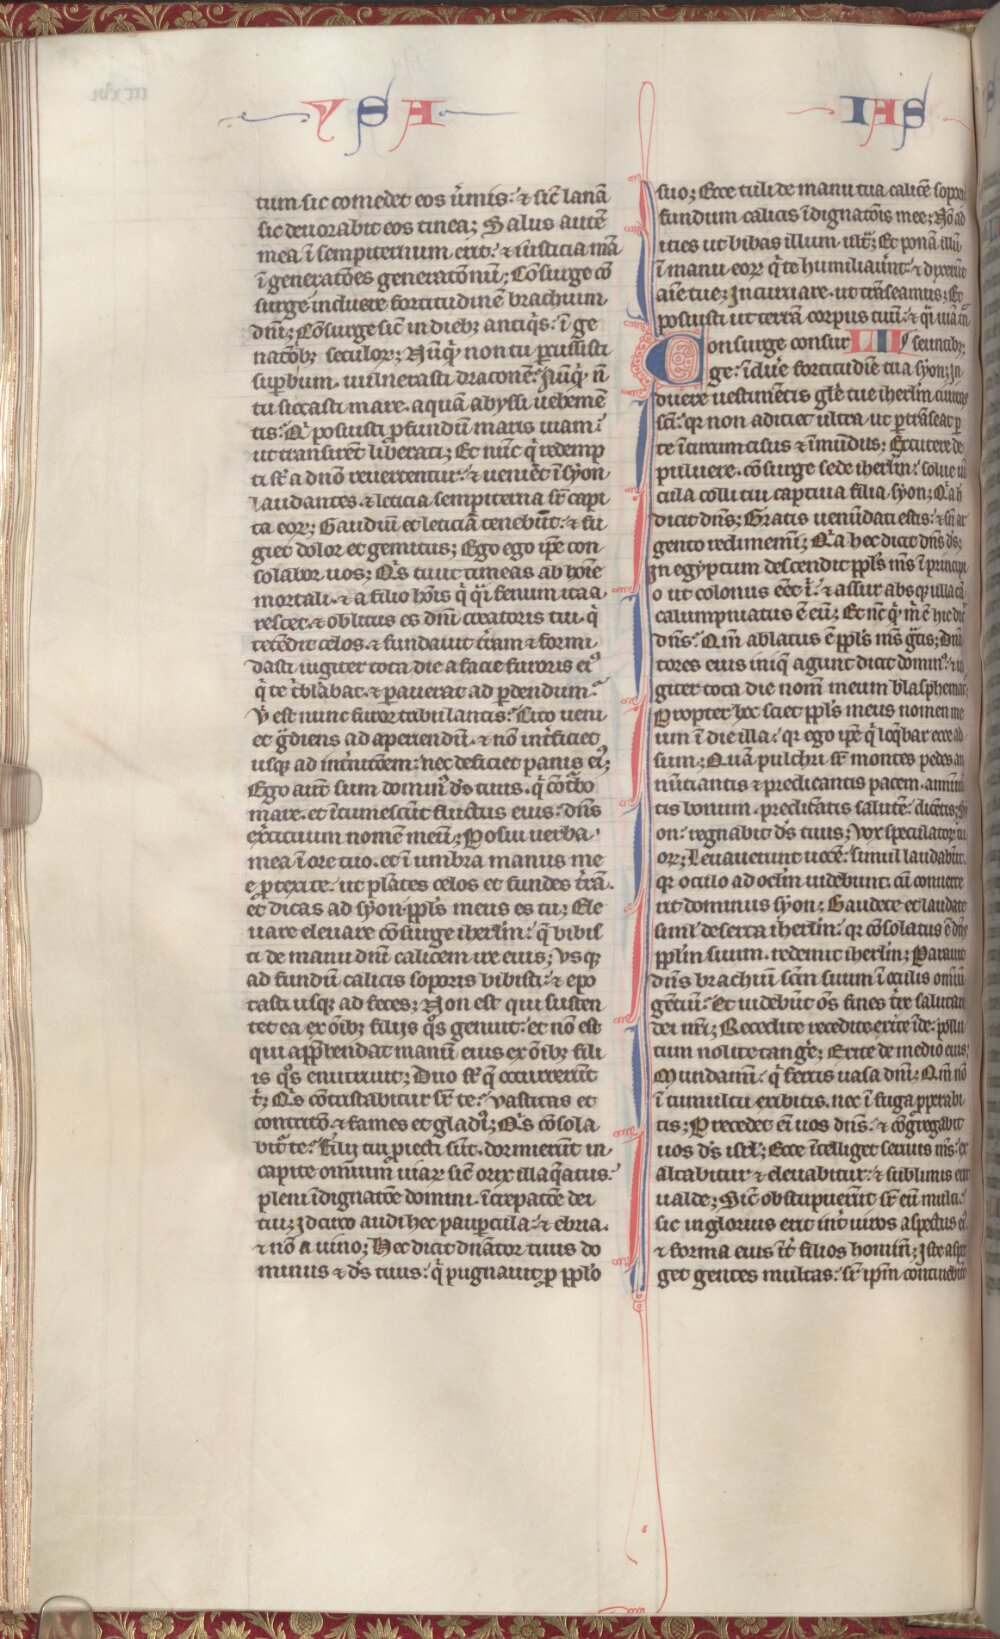 Y S A
I A S
tum sic comedet eos ūmis: & sic̄ lanā
sic deuorabit eos tinea; Salus autē
mea ī sempiternum erit: & iusticia mā
ī generatōes generatōnū; Cōsurge cō
surge induere fortitudinē brachium
dnī; Cōsurge sic̄ in diebꝫ antiqͥs: ī ge
natōibꝫ seculoꝝ; Nūqͥd non tu ꝑcussisti
suꝑbum. uulnerasti draconē: Nūqͥd n̄
tu siccasti mare. aquā abyssi uehemē
tis: Qͥ posuisti ꝓfundū maris uiam:
ut transirēt liberati; Et nūc qͥ redemp
ti sūt a dnō reuertentur: & ueniēt ī syon
laudantes. & leticia sempiterna sr̄ capi
ta eoꝝ; Gaudiū et leticiā tenebūt: & fu
giet dolor et gemitus; Ego ego ip̄e con
solabor uos; Qͥs tu ut timeas ab hoīe
mortali. & a filio hoīs qͥ qͣi fenum ita a
rescet. & oblitus es dnī creatoris tui. qͥ
tetēdit celos. & fundauit t̄ram & formi
dasti iugiter tota die a facie furoris eiꝰ
qͥ te t̄blabat. & ꝑauerat ad ꝑdendum:
Vͥ est nunc furor tribulantis: Cito ueni
et gͣdiens ad aperiendū. & nō int̄ficiet
usqꝫ ad int̄nitōem: nec deficiet panis eiꝰ;
Ego aūt sum dominꝰ dꝰs tuus. qͥ cōtͬbo
mare. et ītumescūt fluctus eius: dn̄s
ex̄cituum nomē meū; Posui uerba
mea ī ore tuo. et ī umbra manus me
e ꝓtexi te: ut plātes celos et fundes t̄rā.
et dicas ad syon. ppl̄s meus es tu; Ele
uare eleuare cōsurge iherlm̄: qͥ bibis
ti de manu dnī calicem ire eius; Vsqꝫ
ad fundū calicis soporis bibisti: & epo
tasti usqꝫ ad feces; Non est qui susten
tet ea ex ōibꝫ filijs qͦs genuit: et nō est
qui app̄hendat manū eius ex ōibꝫ fili
is qͦs enutriuit; Duo sūt qͥ occurrerūt
tͥ; Qͥs cōtristabitur sr̄ te: Vastitas et
contritō. & fames et gladiꝰ; Qͥs cōsola
bitͬ te: Filij tui ꝓiecti sūt. dormierūt in
capite omniūm uiaꝝ sic̄ orix illaqͣatus:
pleni īdignatōe domini. īcrepatōe dei
tui; Idcirco audi hec pauꝑcula. & ebria.
& nō a uino; Hec dicit dn̄ator tuus do
minus & dꝰs tuus: qͥ pugnauit ꝓ pplo
suo; Ecce tuli de manu tua calicē sopor
fundum calicis īdignatōis mee; Nō ad
icies ut bibas illum ultͣ; Et ponā illū
ī manu eoꝝ qͥ te humiliauīt: & dixerūt
aīe tue; Incuruare. ut trāseamus; Et
posuisti ut terrā corpus tuū: & qͣi uiā
Consurge consur LII
ge: īdue fortitudīe tua syon; In
duere uestimētis gl̄e tue iherlm̄ ciuitas
sc̄i: qꝛ non adiciet ultra ut ꝑtrāseat ꝑ
te ītircumcisus & īmūdus; Excutere de
puluere. cōsurge sede iherlm̄: solue ui
cula colli tui captiua filia syon; Qͥa h̄
dicit dn̄s; Gratis uenūdati estis: & sn̄ ar
gento redimemī; Qͥa hec dicit dn̄s dꝰs;
In egyptum descendit ppl̄s mꝰs ī principi
o ut colonus eēt ī: & assur absqꝫ ulla cā
calumpniatus ē eū; Et nc̄ qͥd m̄ ē hic dicͥ
dn̄s: Qm̄ ablatus ē ppl̄s mꝰs gͣtis; Dnā
tores eius iniq̄ agunt dicit dominꝰ: & iu
giter tota die nom̄ meum blasphemat;
Propter hoc sciet ppl̄s meus nomen me
um ī die illa: qꝛ ego ip̄e qͥ loqͤbar ecce ad
sum; Quā pulchri sr̄ montes pedes an
nūtiantis & predicantis pacem. annūtiā
tis bonum. predicātis salutē: dicētis; sy
on: regnabit dꝰs tuus; Vox speculatoꝝ tu
oꝝ; Leuauerunt uocē: simul laudabūt.
qꝛ oculo ad oclm̄ uidebunt. cū conuerte
rit dominus syon; Gaudete et laudate
siml̄ deserta iherlm̄: qꝛ cōsolatus ē dn̄s
pplm̄ suum. redemit iherlm̄; Parauit
dn̄s brachiū scm̄ suum ī oculis omniū
gētiū: Et uidebūt oēs fines t̄re salutare
dei nr̄i; Recedite recedite exite īde: pollu
tum nolite tangͤe; Exite de medio eius;
Mundamī: qͥ fertis uasa dnī; Qm̄ nō
ī tumultu exibitis. nec ī fuga ꝓꝑabi
tis; Precedet eī uos dn̄s: & cōgͤgabit
uos dꝰs isrl̄; Ecce ītelliget seruus mꝰs. ex
altabitur & eleuabitur. & sublimis erit
ualde; Sic̄ obstupuerūt sr̄ eū multi:
sic inglorius erit int̄ uiros aspectus eiꝰ.
& forma eius īt̄ filios hominū; Iste asper
get gentes multas: sr̄ ip̄m continebūt